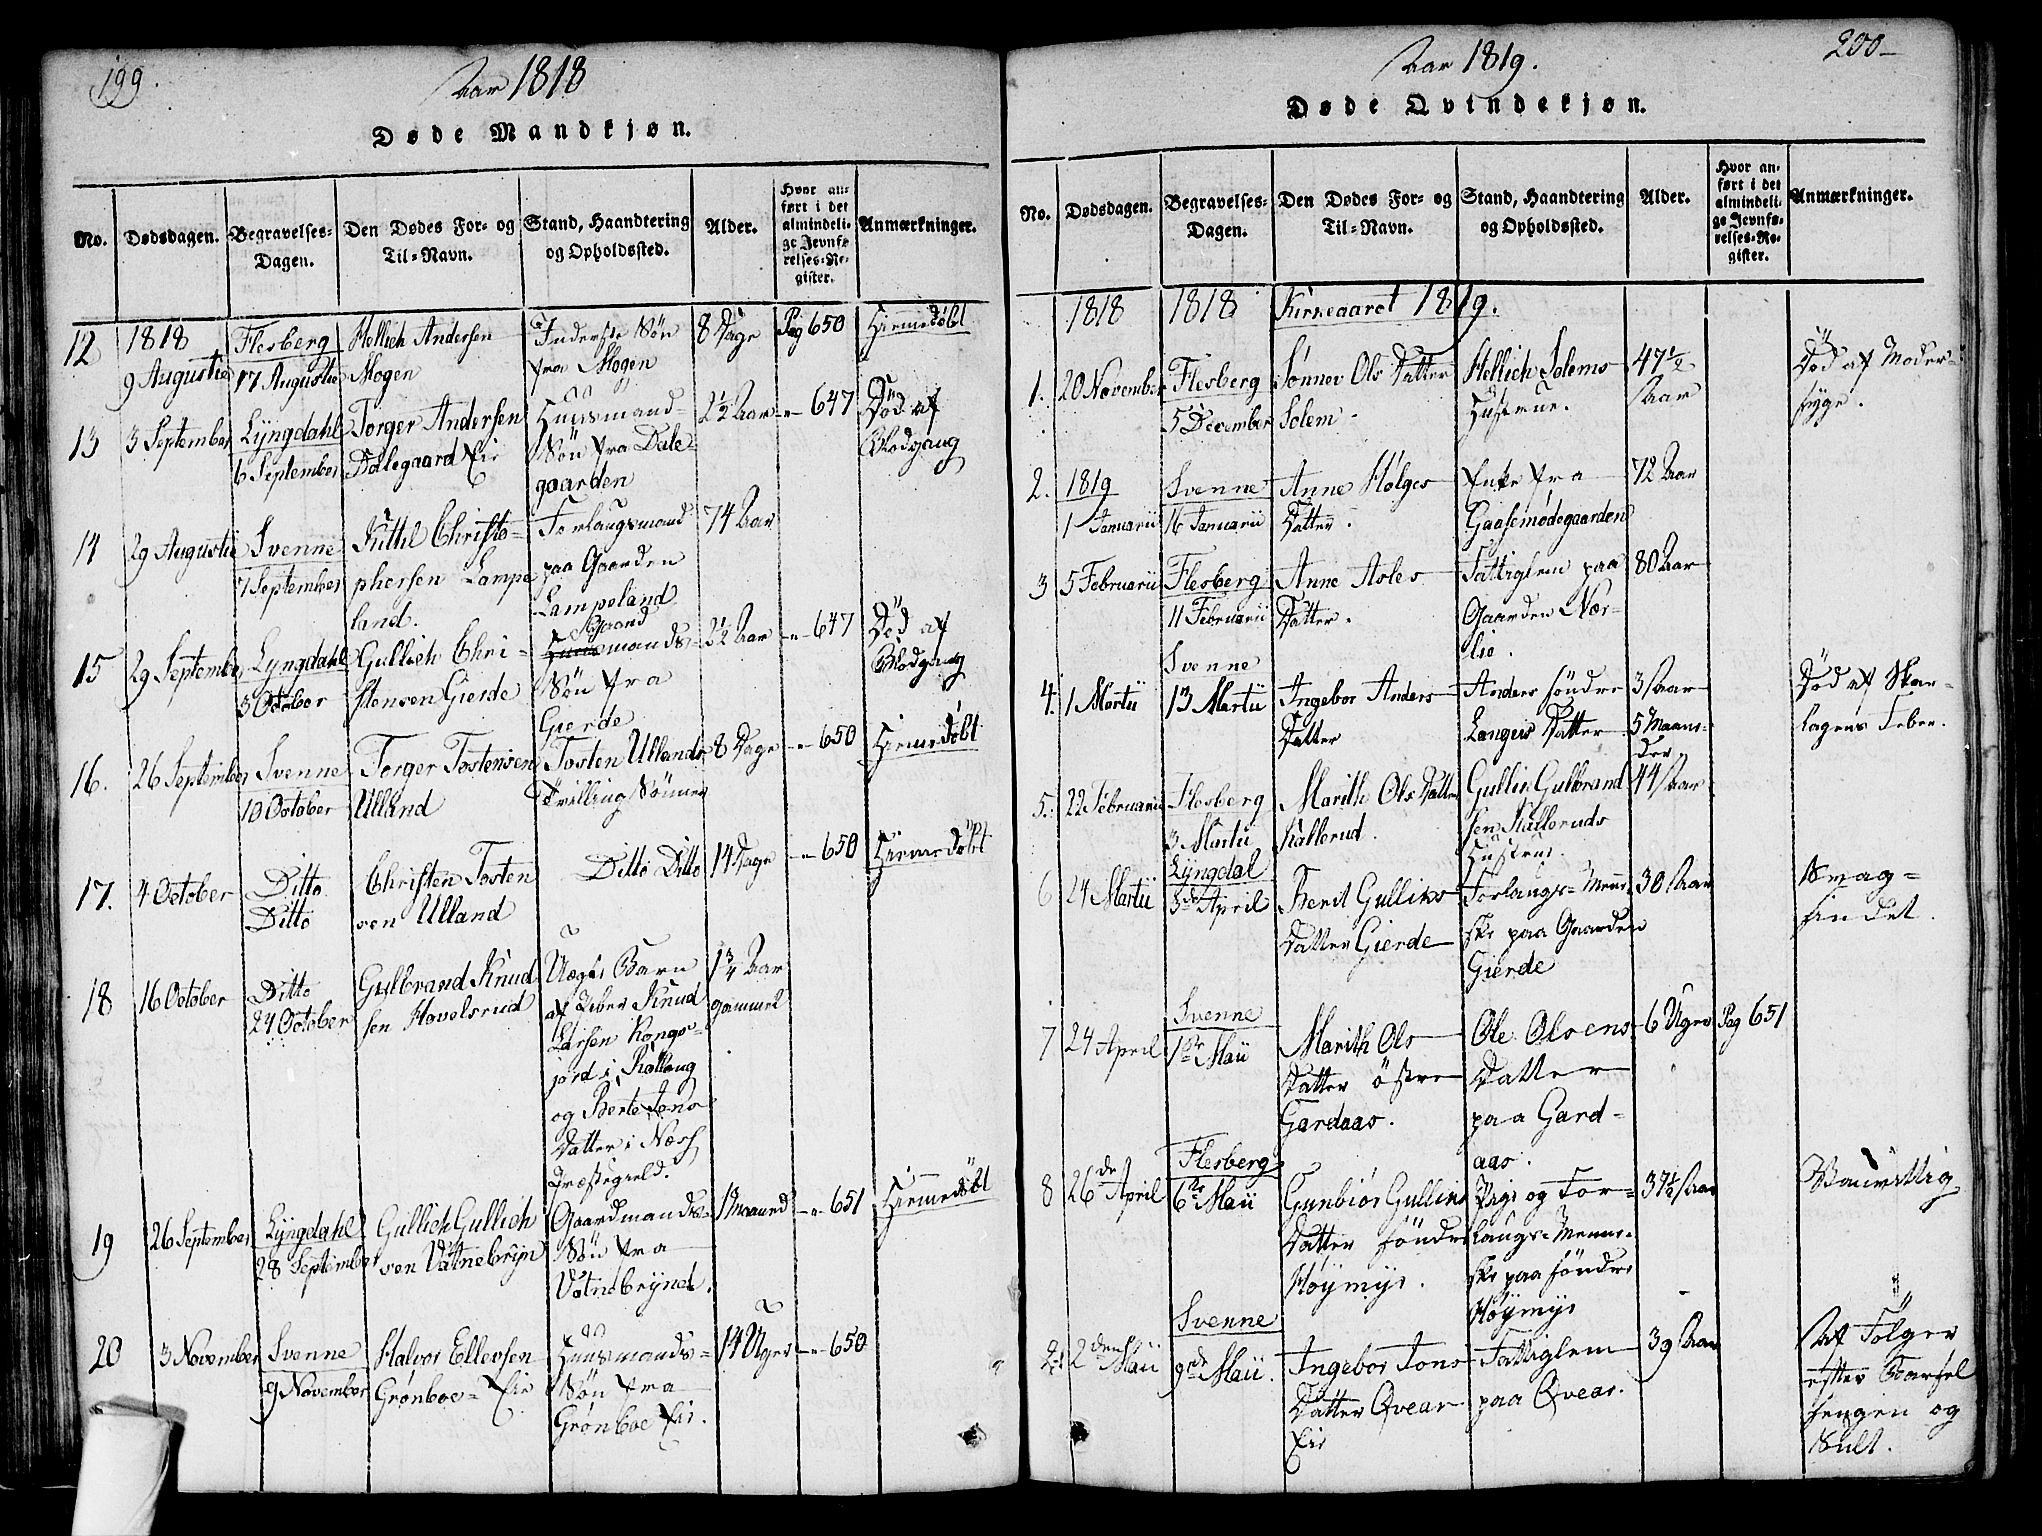 199.
Aar 1818
Døde Mandkjøn.
No.
Dødsdagen.
Begravelses-
Dagen.
Den Dødes For- og
Til-Navn.
Stand, Haandtering
og Opholdssted.
Alder.
Hvor an-
ført i det
almindeli-
ge Jevnfø-
relses-Re-
gister.
Anmærkninger.
12
1818
9 Augustii
Flesberg
17 Augustii
Hellich Andersen
Mogen
Inderste Søn
fra Mogen
8 Dage
Pag 650
Hiemedøbt
13
3 September
Lÿngdahl
6 September
Torger Andersen
Dalegaard Eie
Huusmand-
Søn fra Dale-
gaarden
2½ Aar
-"- 647
Død af
Blodgang
14
29 Augustii
Svenne
7 September
Kittil Christo-
phersen Lampe
land.
Forlaugsmand
paa Gaarden
Lampeland
74 Aar
15
29 September
Lÿngdahl
3 October
Gullich Chri-
stensen Gierde
Gaard
Huusmands-
Søn fra
Gierde
2½ Aar
-"- 647
Død af
Blodgang
16.
26 September
Svenne
10 October
Torger Tostensen
Ulland
Tosten Ullands
Tvilling Sønner
8 Dage
-"- 650
Hiemedøbt
17.
4 October
Ditto
Ditto
Christen Tosten
sen Ulland
Ditto Ditto
14 Dage
-"- 650
Hiemedøbt
18
16 October
Ditto
24 October
Gulbrand Knud
sen Hovelsrud
Uægte Barn
af Knud
Larsen Kongs-
jord i Rollaug
og Berte Jens
Datter i Næss
Præstegield.
1¾ Aar
gammel
19
26 September
Lÿngdahl
28 September
Gullich Gullich
sen Vatnebrÿn
Gaardmands-
Søn fra
Vatnebrÿnet.
1 Maaned
-"- 651
Hiemedøbt
20
3 November
Svenne
9 November
Halvor Ellevsen
Grønboe-Eie
Huusmands-
Søn fra
Grønboe Eie.
14 Uger
-"- 650
200-
Aar 1819.
Døde Qvindekjøn.
No.
Dødsdagen.
Begravelses-
Dagen.
Den Dødes For- og
Til-Navn.
Stand, Haandtering
og Opholdssted.
Alder.
Hvor an-
ført i det
almindeli-
ge Jevnfø-
relses-Re-
gister.
Anmærkninger.
1818
1818
Kirkeaaret 1819.
1.
20 November
Flesberg
5 December
Sønnev Ols Datter
Solem.
Hellich Solems
Hustrue.
47½
Aar
Død af Moder-
syge.
2.
1819
1 Januarii
Svenne
16 Januarii
Anne Holges
Datter.
Enke fra
Gaasemødegaarden
72 Aar
3
5 Februarii
Flesberg
11 Februarii
Anne Asles
Datter.
Fattiglem paa
Gaarden Nør-
lie.
80 Aar
4.
1 Martii
Svenne
13 Martii
Ingebor Anders
Datter
Anders Søndre
Langeis Datter
3 Aar
5 Maane-
der
Død af Skar-
lagens Feber.
5.
22 Februarii
Flesberg
3 Martii
Marith Ols Datter
Kallerud.
Gullik Gulbrand
sen Kalleruds
Hustrue.
44 Aar
6
24 Martii
Lÿngdal
3de April
Berit Gulliks
Datter Gierde
Forlaugs-Menne-
ske paa Gaarden
Gierde
30 Aar
Svag-
sindet.
7
24 April
Svenne
1ste Maii
Marith Ols
Datter østre
Gardaas.
Ole Olsens
Datter
paa Gard-
aas.
6 Uger
Pag 651
8
26de April
Flesberg
6te Maii
Gunbiør Gulliks
Datter søndre
Høÿmÿr.
Pige og For-
laugs-Menne-
ske paa søndre
Høÿmÿr
37½ Aar
Vanvittig
2den Maii
Svenne
9de Maii.
Ingebor Jons
Datter Qvear
Eie
Fattiglem
paa Qvear.
39 Aar
Af Følger
efter Barsel
sengen og
Sult.